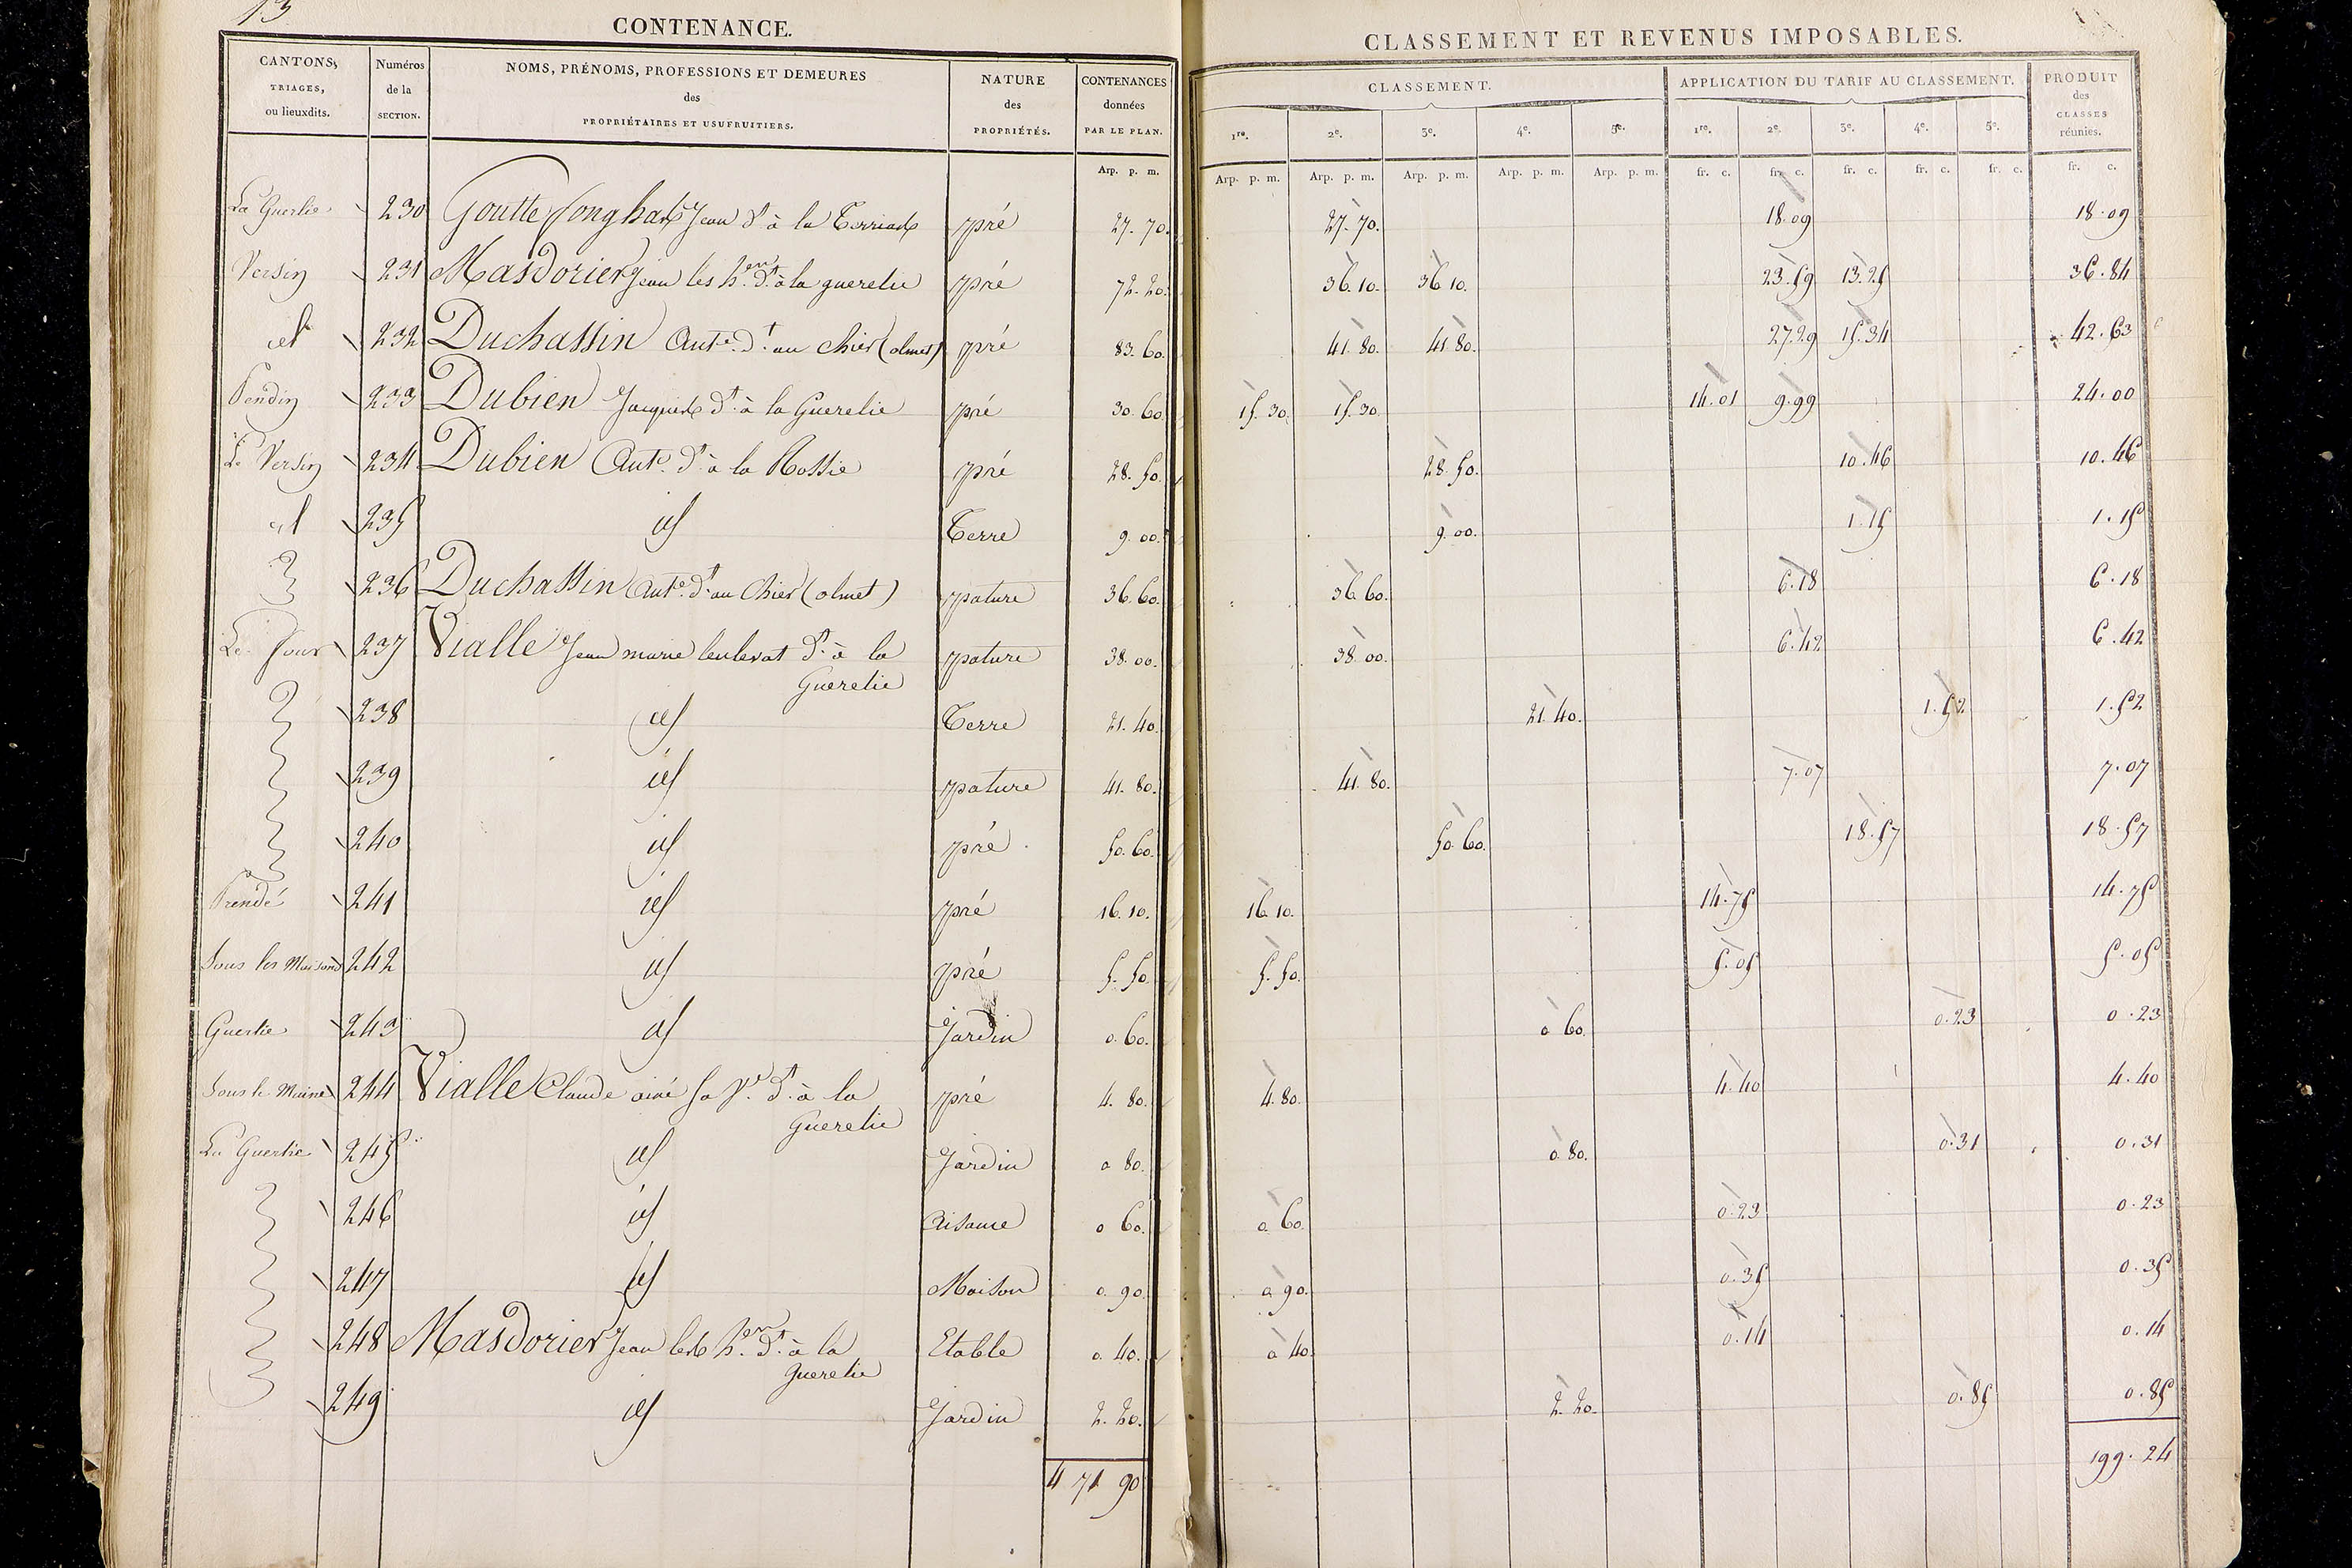 13
CONTENANCE.
CANTONS, TRIAGES, ou lieuxdits. | Numéros de la SECTION. | NOMS, PRÉNOMS, PROFESSIONS ET DEMEURES des PROPRIÉTAIRES ET USUFRUITIERS. | NATURE des PROPRIÉTÉS. | CONTENANCES données PAR LE PLAN.
Arp. p. m.
CLASSEMENT ET REVENUS IMPOSABLES.
CLASSEMENT. | APPLICATION DU TARIF AU CLASSEMENT. | PRODUIT des CLASSES réunies.
1re. 2e. 3e. 4e. 5e. | 1re. 2e. 3e. 4e. 5e.
Arp. p. m. Arp. p. m. Arp. p. m. Arp. p. m. Arp. p. m. | fr. c. fr. c. fr. c. fr. c. fr. c. | fr. c.
La Guerlie 230 Goutte Jean dt à la pré 27. 70. 27. 70. 18.09 18.09
Versin 231 Masdorier Jean les hers dt à la guerelie pré 72. 20. 36. 10. 36 10. 23.59 13.25 36.84
id 232 Duchassin Ante. dt. au Chier (olmet) pré 83. 60. 41. 80. 41 80. 27.29 15.34 42.63
233 Dubien Jacques dt à la Guerelie pré 30. 60. 15. 30. 15. 30. 14.01 9.99 24.00
Le Versin 234 Dubien Ante. dt à la Rossie pré 28. 50. 28. 50. 10.46 10.46
id 235 id Terre 9. 00. 9. 00. 1.15 1.15
236 Duchassin Ante. dt au Chier (olmet) pature 36. 60. 36. 60. 6.18 6.18
Le 237 Vialle Jean marie dt à la pature 38. 00. 38. 00. 6.42 6.42
Guerelie
238 id Terre 21. 40. 21. 40. 1.52 1.52
239 id pature 41. 80. 41. 80. 7.07 7.07
240 id pré 50. 60. 50. 60. 18.57 18.57
241 id pré 16. 10. 16. 10. 14.75 14.75
Sous les Maisons 242 id pré 5. 50. 5. 50. 5.05 5.05
Guerlie 243 id Jardin 0. 60. 0. 60. 0.23 0.23
Sous le 244 Vialle Claude ainé sa ve. dt à la pré 4. 80. 4. 80. 4.40 4.40
Guerelie
La Guerlie 245 id Jardin 0 80. 0. 80. 0.31 0.31
246 id Aisance 0 60. 0. 60. 0.23 0.23
247 id Maison 0. 90. 0. 90. 0.35 0.35
248 Masdorier Jean les hers dt à la Etable 0. 40. 0 40. 0.14 0.14
guerelie
249 id Jardin 2. 20. 2. 20. 0.85 0.85
4 71 90
199.24